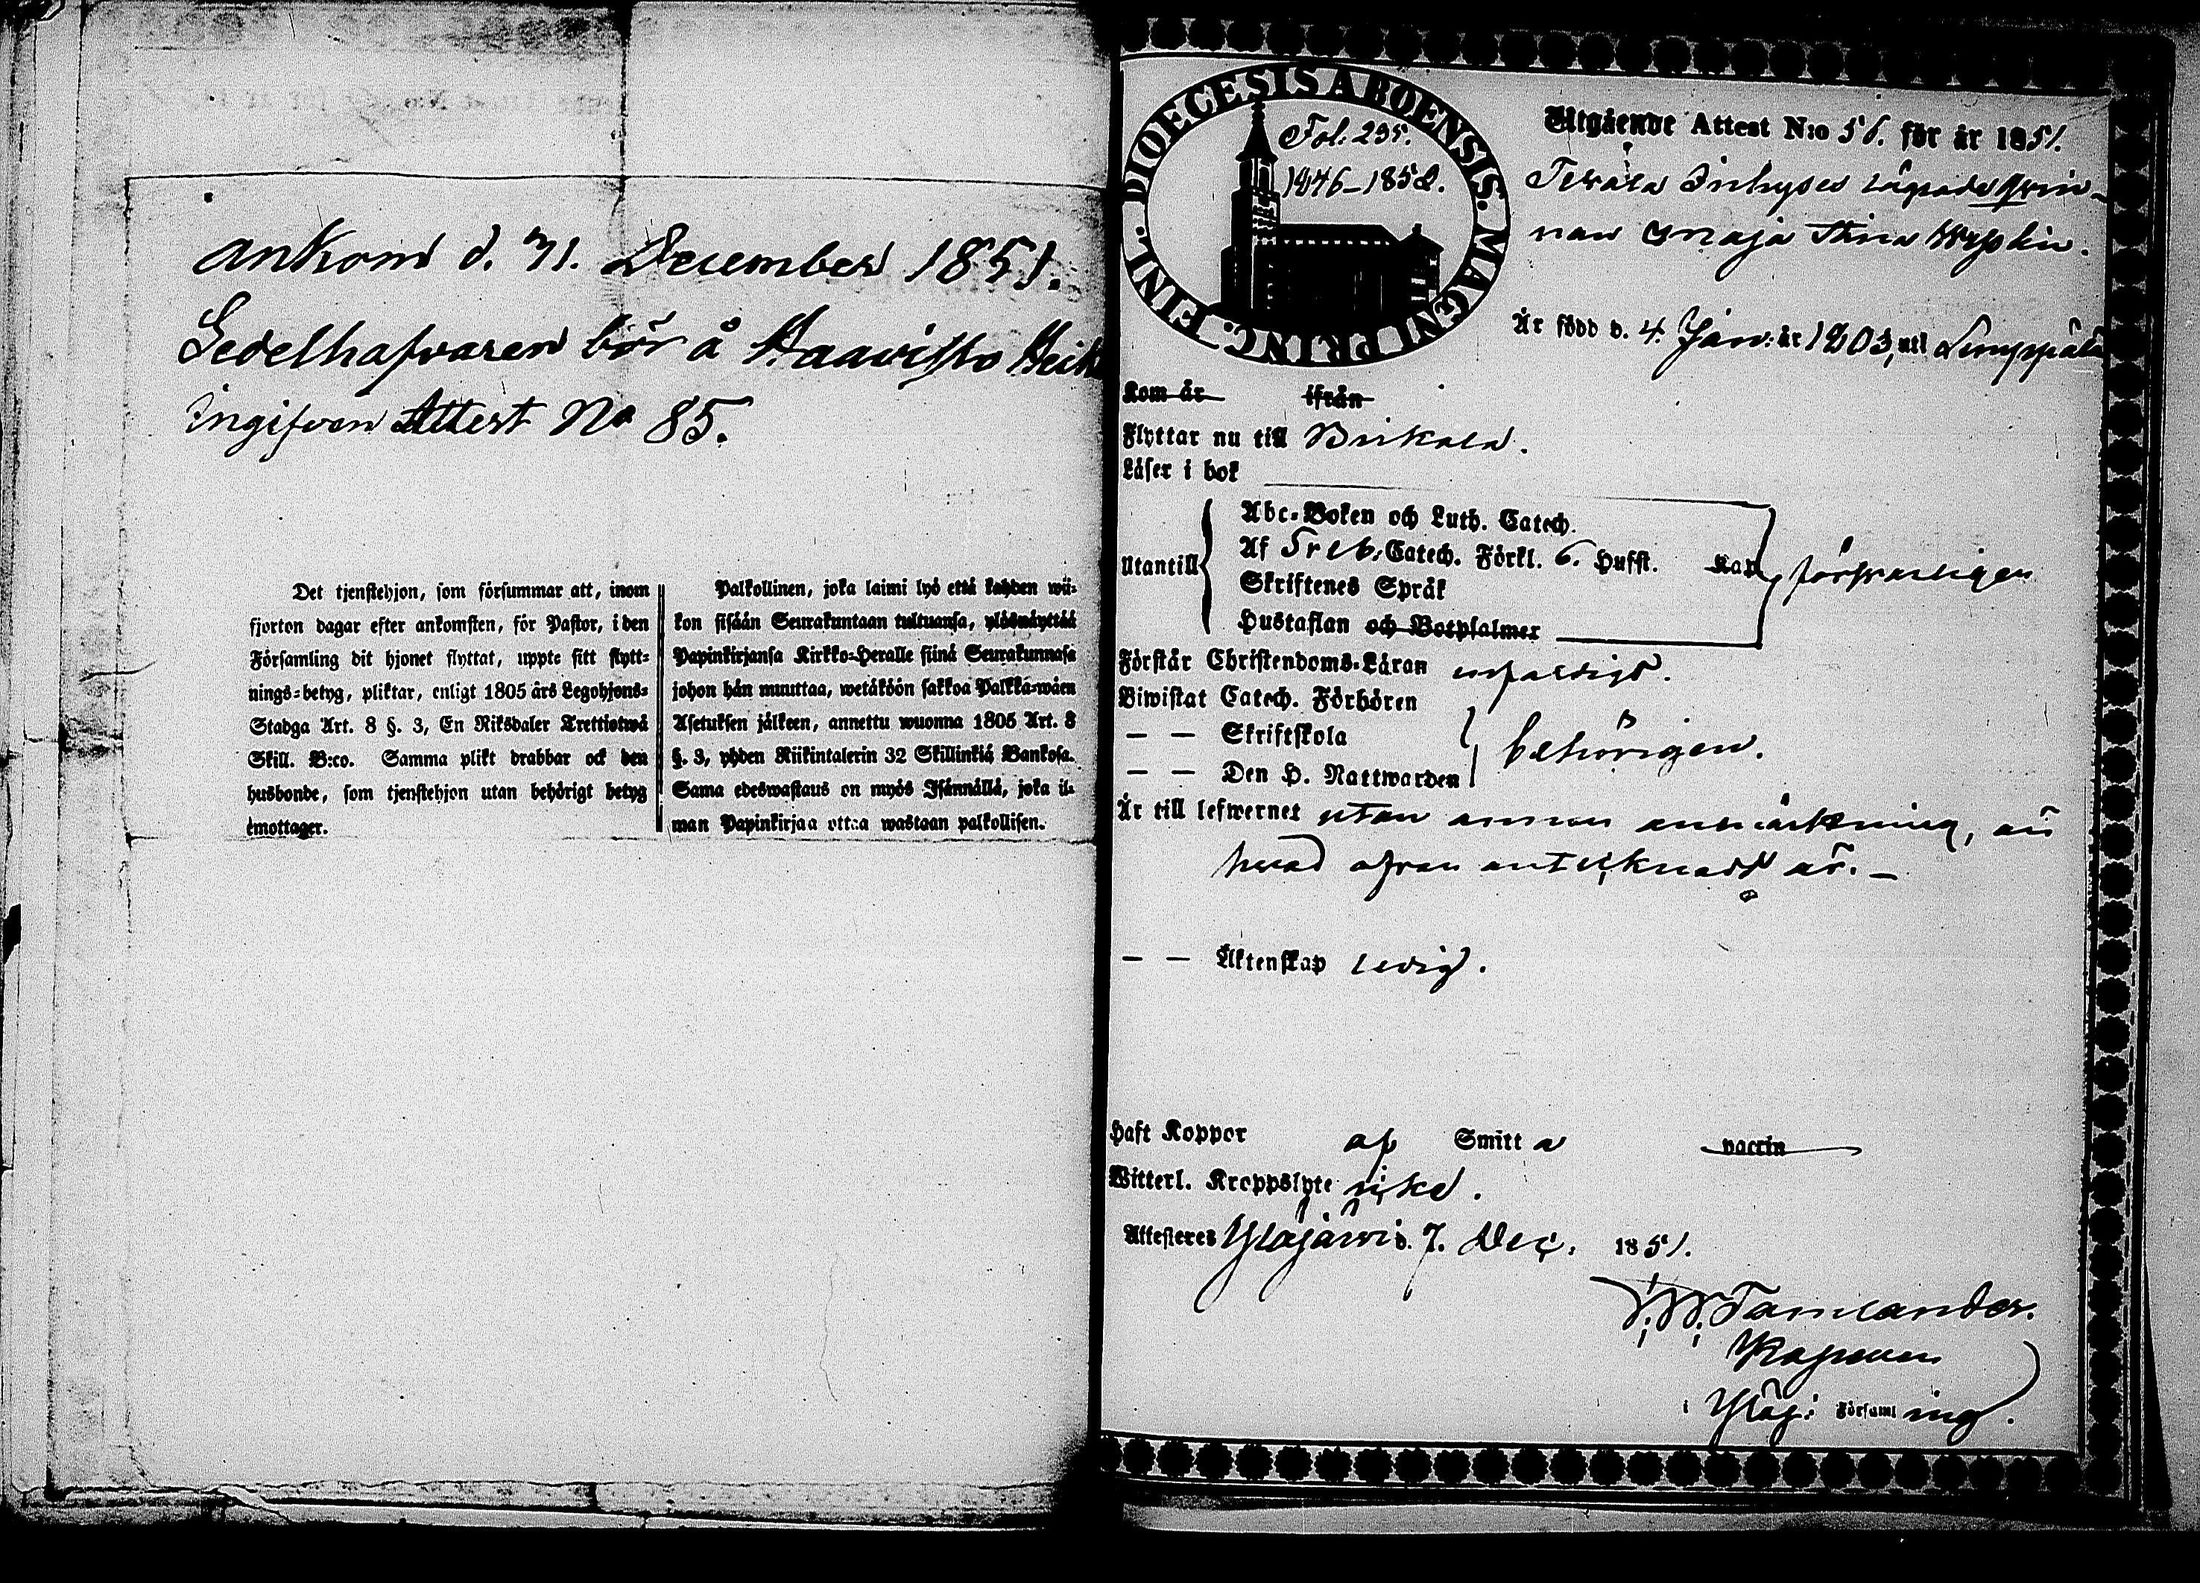 ankom d. 31. December 1851.
Sedelhafvaren bör å Haavisto Heik
Ingifven Attest No 85.
Det tjenstehjon, som försummar att, inom
fjorton dagar efter ankomsten, för Pastor, i den
Församling dit hjonet flyttat, uppte sitt flytt-
nings-betyg, pliktar, enligt 1805 års Legohjons-
Stadga Art. 8 §. 3, En Riksdaler Trettiotwå
Skill. B:co. Samma plikt drabbar ock den
husbonde, som tjenstehjon utan behörigt betyg
emottager.
Palkollinen, joka laimi lyö että kahden wii-
kon sisään Seurakuntaan tultuansa, ylösnäyttää
Papinkirjansa Kirkko-Heralle siinä Seurakunnasa
johon hän muuttaa, wetäköön sakkoa Palkka-wäen
Asetuksen jälkeen, annettu wuonna 1805 Art. 8
§. 3, yhden Riikintalerin 32 Skillinkiä Bankosa.
Sama edeswastaus on myös Isännällä, joka il-
man Papinkirjaa ottaa wastaan palkollisen.
DIOECESIS ABOENSIS. MAGNI PRINC. FINL.
Fol. 235.
1846-1852.
Utgående Attest N:o 56. för år 1851.
Inhyses qvin-
nan Maja Stina
Är född d. 4. Jan. år 1803, uti Lempäälä
Kom år ifrån
Flyttar nu till Birkala.
Läser i bok
Utantill
Abc-Boken och Luth. Catech.
Af Sveb. Catech. Förkl. 6. Hufst. Kan försvarligen
Skriftenes Språk
Hustaflan och Botpsalmer
Förstår Christendoms-Läran enfaldigt.
Biwistat Catech. Förhören
— — Skriftskola behörigen.
— — Den H. Nattwarden
Är till lefwernet utan annan anmärkning, än
hvad ofvan antecknadt är. —
— — Äktenskap ledig.
Haft Koppor af Smitta vaccin
Witterl. Kroppslyte icke.
Attesteras Ylöjärvi d. 7. Dec. 1851.
Tamlander.
Kapellan
i Ylöj: Församling.